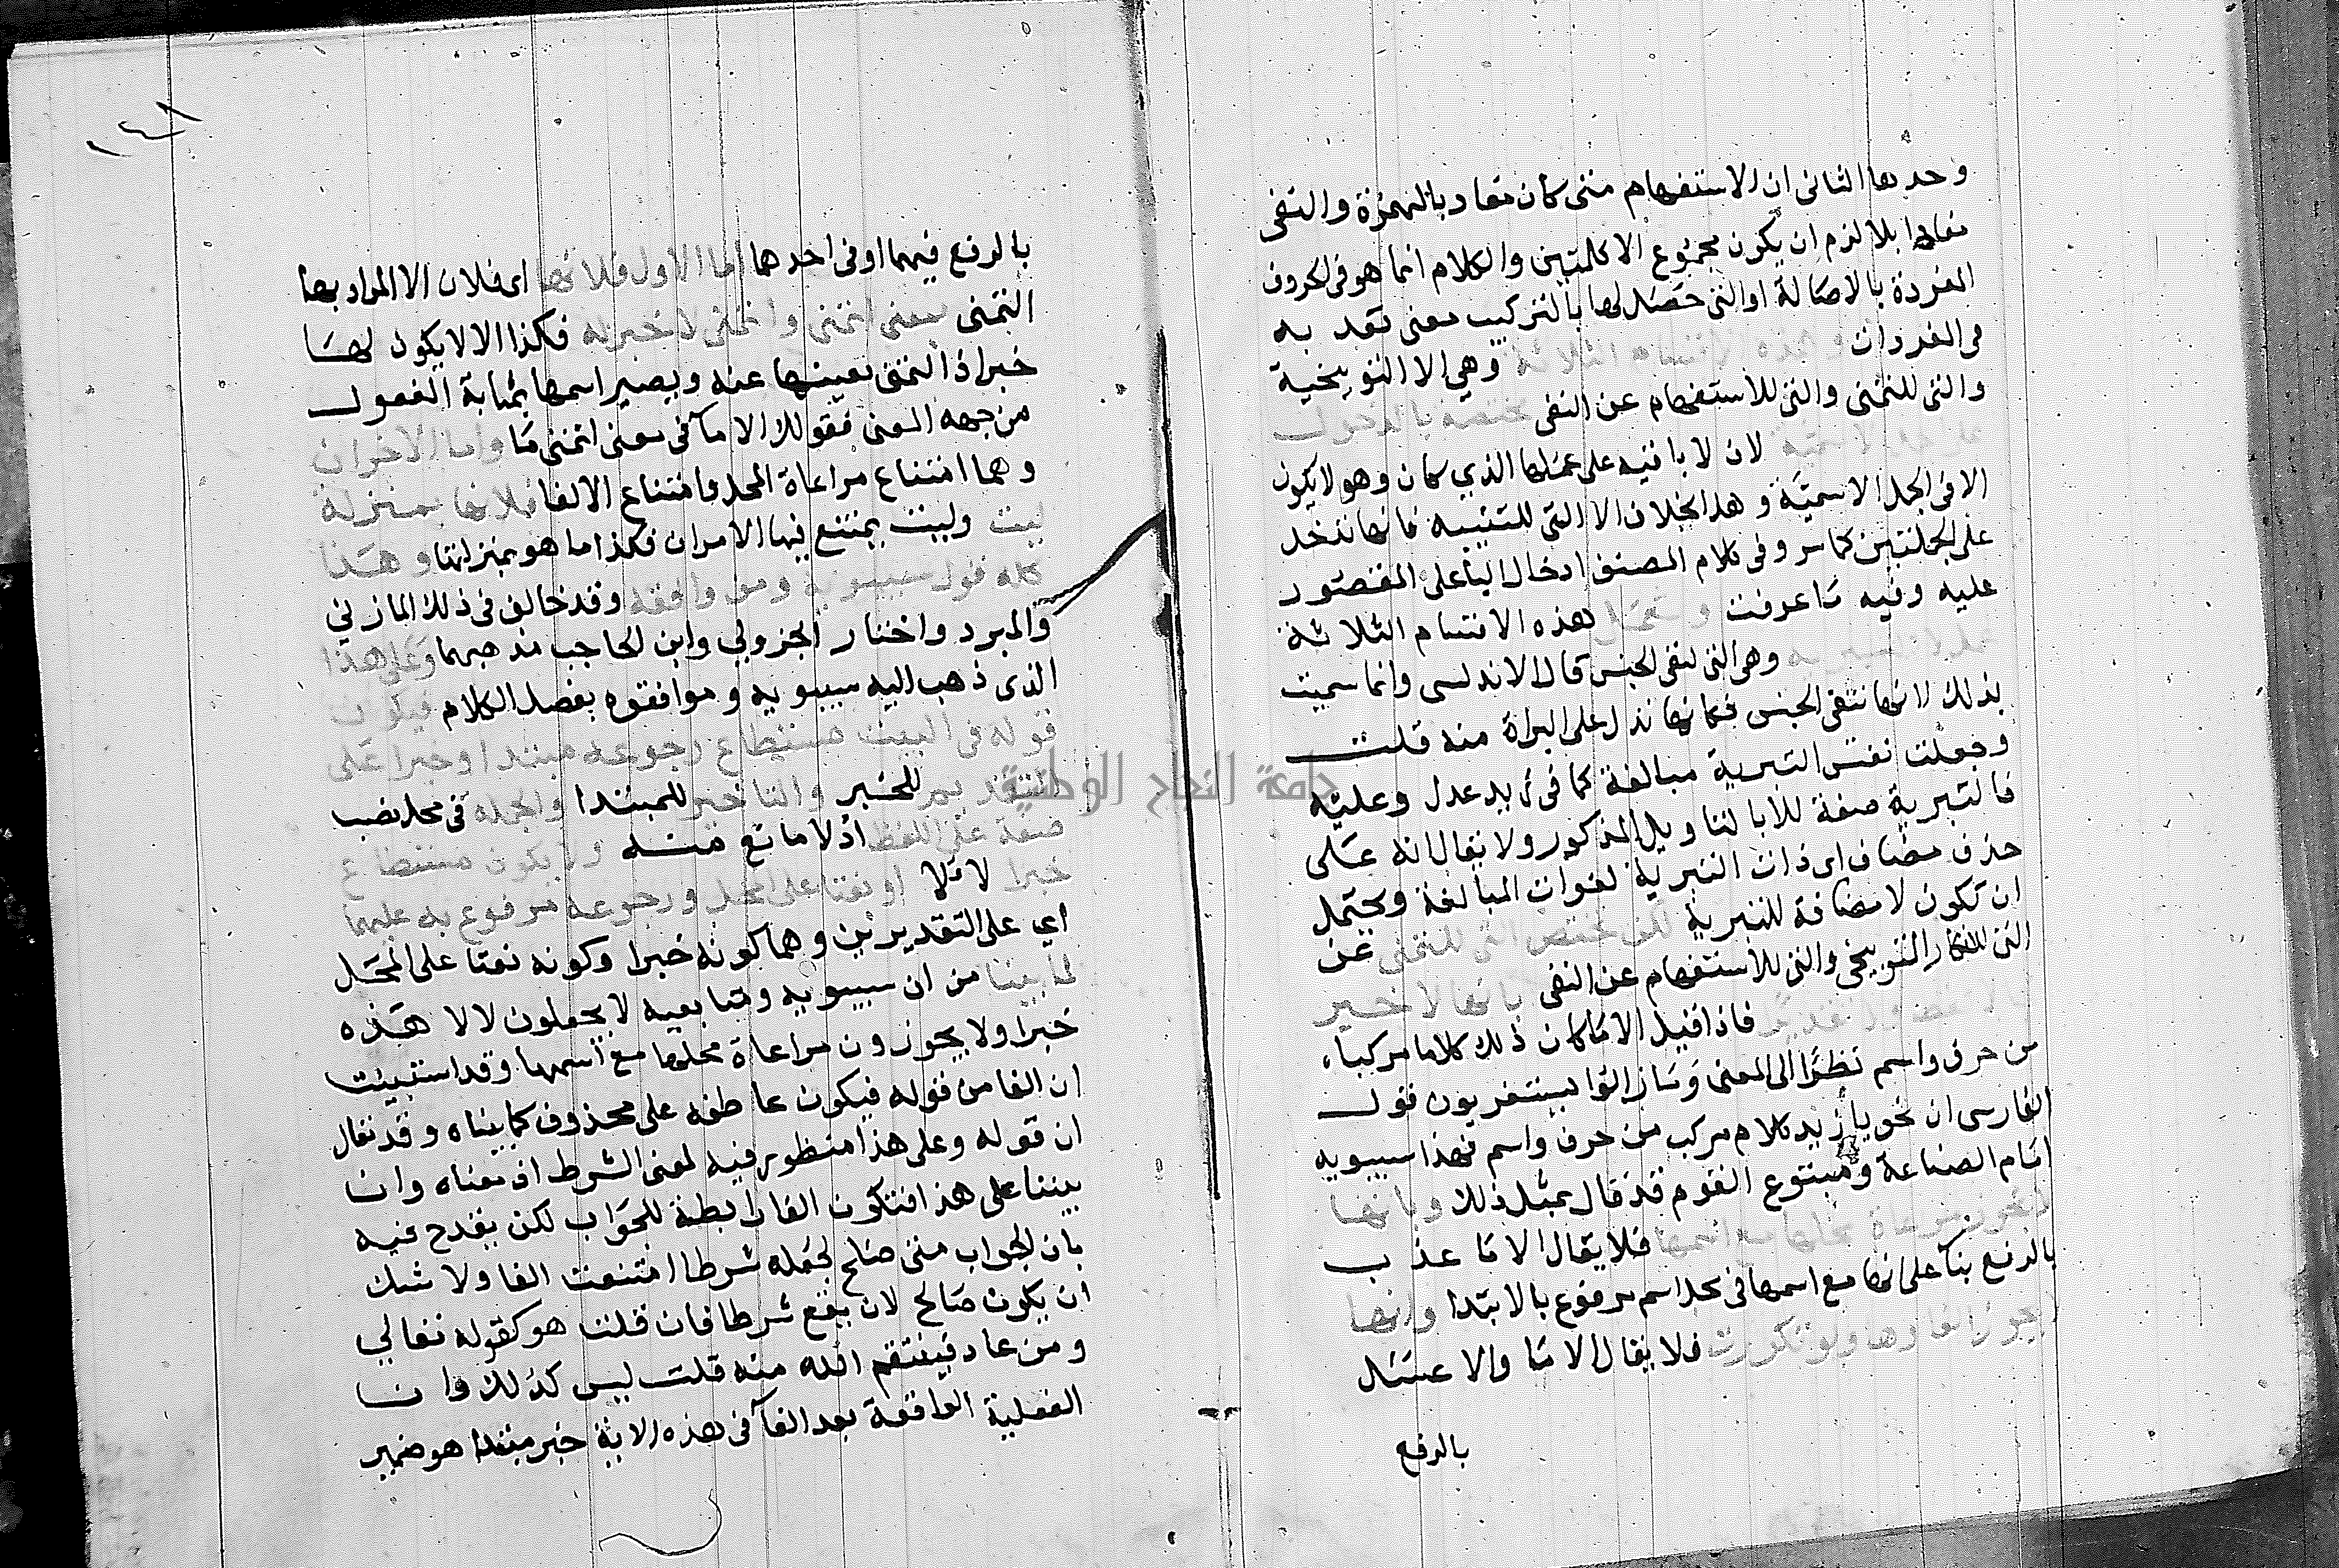 وحدها الثانى ان الاستفهام متى كان مفاد بالهمزة والنفى
مفادا بلا لزم ان يكون مجموع الا كلمتين والكلام انما هو فى الحروف
المفردة بالاصالة او التى حصل لها بالتركيب معنى تعد به
فى المفردات وهذه الاقسام الثلاثة وهى الا التوبيخية
والتى للتمنى والتى للاستفهام عن النفى مختصة بالدخول
على لان لا باقية على عملها الذي كان وهو لا يكون
الا فى الجمل الاسمية وهذا بخلاف الا التى للتنبيه فانها تدخل
على الجملتين كما مر وفى كلام المصنف ادخال البا على المقصور
عليه وفيه ما عرفت وتعمل هذه الاقسام الثلاثة
وهى التى لنفى الجنس قال الاندلسى وانما سميت
بذلك لانها تنفى الجنس فكانها تدل على البراة منه قلت
وجعلت نفس التبرية مبالغة كما فى زيد عدل وعليه
فالتبرية صفة للا بالتاويل المذكور ولا يقال انه على
حذف مضاف اى ذات التبرية لفوات المبالغة ويحتمل
ان تكون لا مضافة للتبرية لكن تختص التى للتمنى عن
التى للانكار التوبيخى والتى للاستفهام عن النفى بانها لا خبر
فاذا قيل الا ما كان ذلك كلاما مركبا
من حرف واسم نظرا الى المعنى وما زالوا يستغربون قول
الفارسى ان نحو يا زيد كلام مركب من حرف واسم فهذا سيبويه
امام الصناعة ومتبوع القوم قد قال بمثل ذلك وبانها
لا يجوز مراعاة محلها مع اسمها فلا يقال الا ما عذب
بالرفع بنا على انها مع اسمها فى محل اسم مرفوع بالابتدا وانها
لا يجوز الغاوها ولو تكررت فلا يقال الا ما والا عسل
بالرفع
بالرفع فيهما او فى احدهما اما الاول فلانها اى فلان الا المراد بها
التمنى بمعنى اتمنى واتمنى لا خبر له فكذا الا لا يكون لها
خبر اذ التمنى يعينها عنه ويصير اسمها بمثابة المفعول
من جهه المعنى فقولك الا ما فى معنى اتمنى ما واما الاخران
وهما امتناع مراعاة المحل وامتناع الالغا فلانها بمنزلة
ليت وليت يمتنع فيها الامران فكذا ما هو بمنزلتها وهذا
كله قول سيبويه ومن وافقه وقد خالف فى ذلك المازني
والمبرد واختار الجزولي وابن الحاجب مذهبهما وعلى هذا
الذى ذهب اليه سيبويه وموافقوه بفضل الكلام فيكون
قوله فى البيت مستطاع رجوعه مبتدا وخبرا على
التقديم للخبر والتاخير للمبتدا والجمله فى محل نصب
صفة على اللفظ اذ لا مانع منه ولا يكون مستطاع
خبرا لالا او نعتا على المحل ورجوعه مرفوع به عليهما
اي على التقديرين وهما كونه خبرا وكونه نعتا على المحل
لما بينا من ان سيبويه ومتابعيه لا يجعلون لالا هذه
خبرا ولا يجوزون مراعاة محلها مع اسمها وقد استبينت
ان الفا من قوله فيكون عاطفه على محذوف كما بيناه وقد يقال
ان قوله وعلى هذا منظور فيه لمعنى الشرط اذ معناه وان
بينا على هذا فتكون الفا رابطة للجواب لكن يقدح فيه
بان الجواب متى صلح لجعله شرطا امتنعت الفا ولا شك
ان يكون صالح لان يقع شرطا فان قلت هو كقوله تعالي
ومن عاد فينتقم الله منه قلت ليس كذلك فان
الفعلية الواقعة بعد الفا فى هذه الاية خبر مبتدا هو ضمير
جامعة النجاح الوطنية